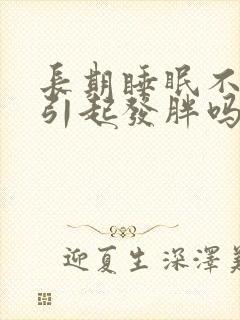 長期睡眠不
引起發胖吗
迎夏生深澤義